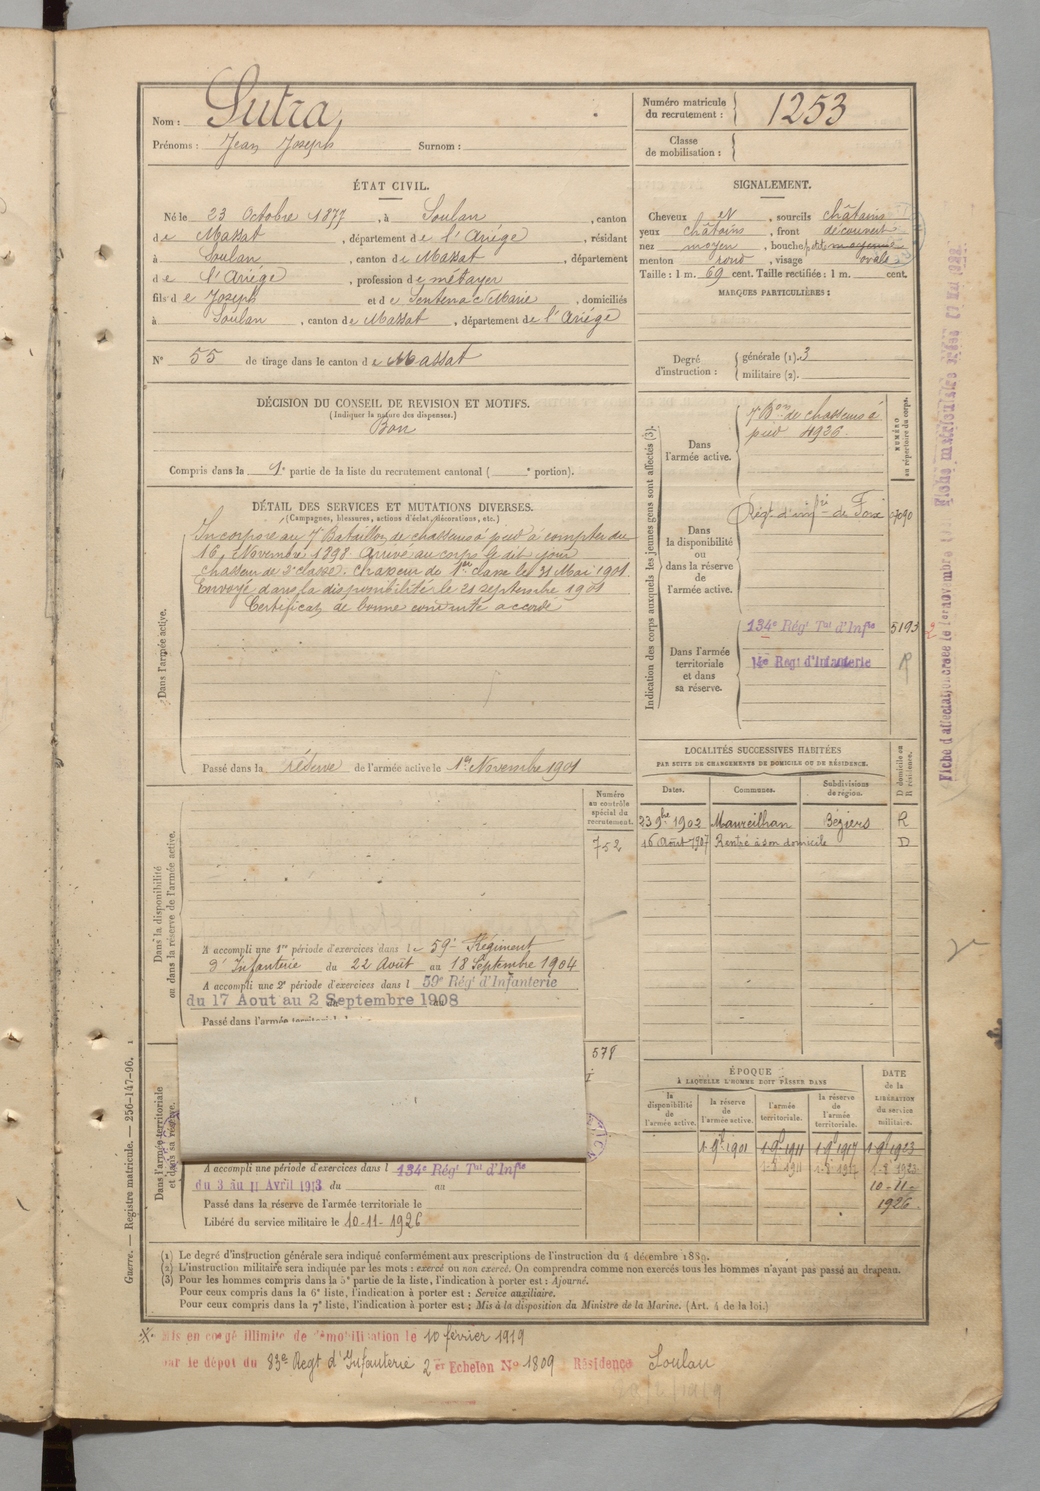 Nom : Sutra
Prénoms : Jean Joseph Surnom :
Numéro matricule du recrutement : 1253
Classe de mobilisation :
ÉTAT CIVIL.
Né le 23 Octobre 1877, à Soulan, canton
de Massat, département de l'Ariége, résidant
à Soulan, canton de Massat, département
de l'Ariége, profession de métayer
fils de Joseph et de Sentenac Marie, domiciliés
à Soulan, canton de Massat, département de l'Ariége
N° 55 de tirage dans le canton de Massat
SIGNALEMENT.
Cheveux et, sourcils châtains
yeux châtains, front découvert
nez moyen, bouche petite moyenne
menton rond, visage ovale
Taille : 1 m. 69 cent. Taille rectifiée : 1 m. cent.
MARQUES PARTICULIÈRES :
Degré d'instruction :
générale (1). 3
militaire (2).
DÉCISION DU CONSEIL DE REVISION ET MOTIFS.
(Indiquer la nature des dispenses.)
Bon
Compris dans la 1e partie de la liste du recrutement cantonal ( e portion).
DÉTAIL DES SERVICES ET MUTATIONS DIVERSES.
(Campagnes, blessures, actions d'éclat, décorations, etc.)
Dans l'armée active.
Incorporé au 7e Bataillon de chasseurs à pied à compter du
16 Novembre 1898. Arrivé au corps le dit jour
chasseur de 2e classe. Chasseur de 1ère classe le 31 Mai 1901.
Envoyé dans la disponibilité le 21 septembre 1901
Certificat de bonne conduite accordé
Passé dans la réserve de l'armée active le 1er Novembre 1901
Indication des corps auxquels les jeunes gens sont affectés (3).
NUMÉRO au répertoire du corps.
Dans l'armée active.
7e Bon de chasseurs à
pied 4926
Dans la disponibilité ou dans la réserve de l'armée active.
Régt d'infrie de Foix 7090
Dans l'armée territoriale et dans sa réserve.
134e Régt Tal d'Infie 5193
14e Régt d'Infanterie R
LOCALITÉS SUCCESSIVES HABITÉES
PAR SUITE DE CHANGEMENTS DE DOMICILE OU DE RÉSIDENCE.
Dates. Communes. Subdivisions de région. D domicile ou R résidence.
23 9bre 1902 Maureilhan Béziers R
16 Août 1907 Rentré à son domicile D
Dans la disponibilité ou dans la réserve de l'armée active.
Numéro au contrôle spécial du recrutement.
752
A accompli une 1re période d'exercices dans le 59e Régiment
d'Infanterie du 22 Août au 18 Septembre 1904
A accompli une 2e période d'exercices dans l 59e Rég' d'Infanterie
du 17 Aout au 2 Septembre 1908
Passé dans l'armée territoriale le
578
Dans l'armée territoriale et dans sa réserve.
A accompli une période d'exercices dans l 134e Régt Tal d'Infie
du 3 au 11 Avril 1913 du au
Passé dans la réserve de l'armée territoriale le
Libéré du service militaire le 10-11-1926
ÉPOQUE
À LAQUELLE L'HOMME DOIT PASSER DANS
la disponibilité de l'armée active. la réserve de l'armée active. l'armée territoriale. la réserve de l'armée territoriale. DATE de la LIBÉRATION du service militaire.
1-9b 1901 1-9b 1911 1-9b 1917 1-9b 1923
1-8 1911 1-8 1917 1-8 1923
10-11-
1926
(1) Le degré d'instruction générale sera indiqué conformément aux prescriptions de l'instruction du 4 décembre 1889.
(2) L'instruction militaire sera indiquée par les mots : exercé ou non exercé. On comprendra comme non exercés tous les hommes n'ayant pas passé au drapeau.
(3) Pour les hommes compris dans la 5e partie de la liste, l'indication à porter est : Ajourné.
Pour ceux compris dans la 6e liste, l'indication à porter est : Service auxiliaire.
Pour ceux compris dans la 7e liste, l'indication à porter est : Mis à la disposition du Ministre de la Marine. (Art. 4 de la loi.)
Guerre. — Registre matricule. — 256-147-96.
Mis en congé illimité de démobilisation le 10 février 1919
par le dépot du 83e Regt d'Infanterie 2er Echelon N° 1809 Résidence Soulan